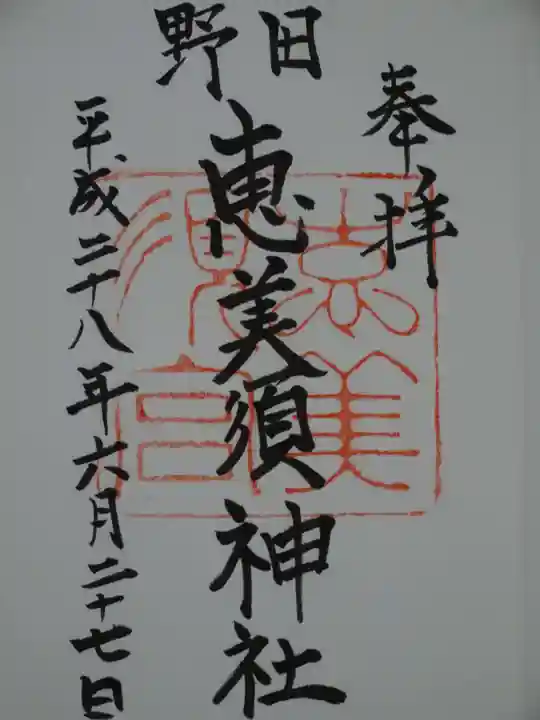 奉拝
野田
恵美須神社
平成二十八年六月二十七日
恵美
須宮